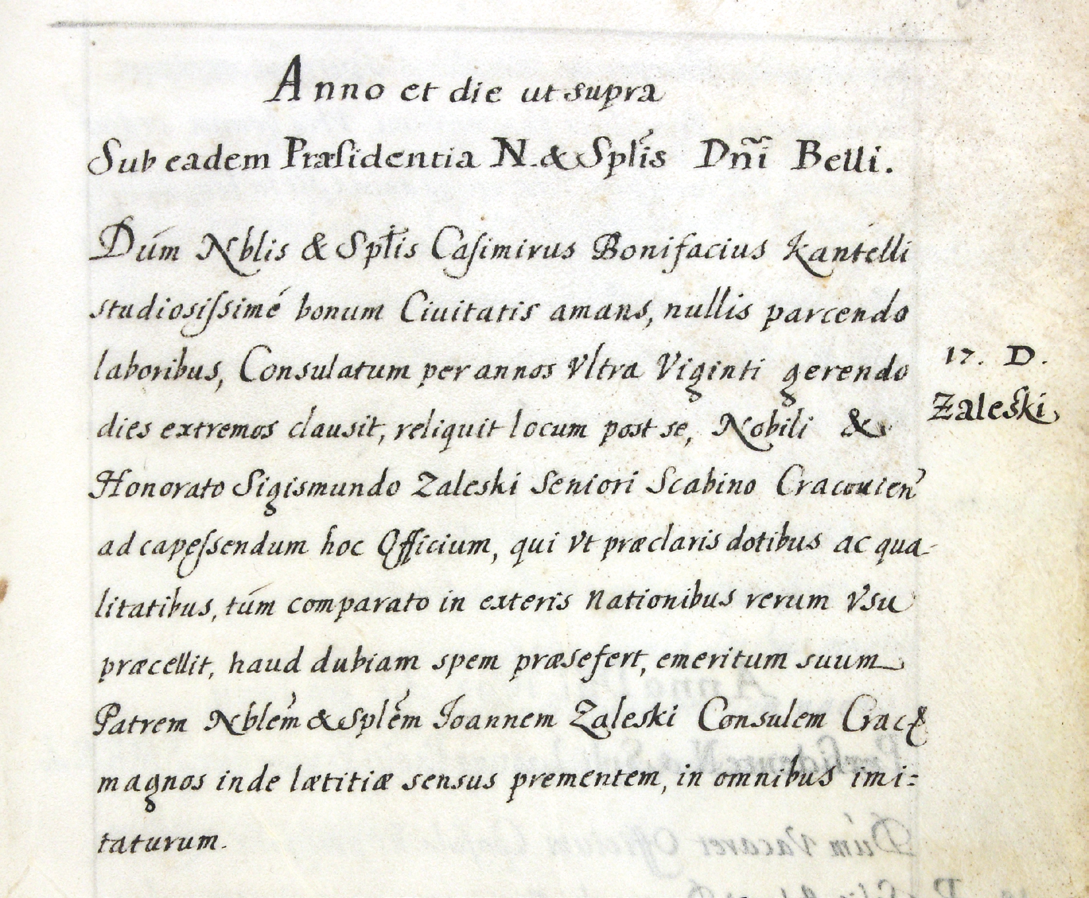 Anno et die ut supra
Sub eadem Præsidentia N. & Spl̃is Dñi Belli.
Dúm Nblis & Spl̃is Casimirus Bonifacius Kantelli
studiosissimé bonum Ciuitatis amans, nullis parcendo
laboribus, Consulatum per annos Vltra Viginti gerendo
17. D.
Zaleski
dies extremos clausit, reliquit locum post se, Nobili &
Honorato Sigismundo Zaleski Seniori Scabino Cracouień
ad capessendum hoc Officium, qui Vt præclaris dotibus ac qua-
litatibus, túm comparato in exteris Nationibus rerum Vsu
præcellit, haud dubiam spem præsefert, emeritum suum
Patrem Nblem̃ & Splem̃ Joannem Zaleski Consulem Crac
magnos inde lætitiæ sensus prementem, in omnibus imi=
taturum.